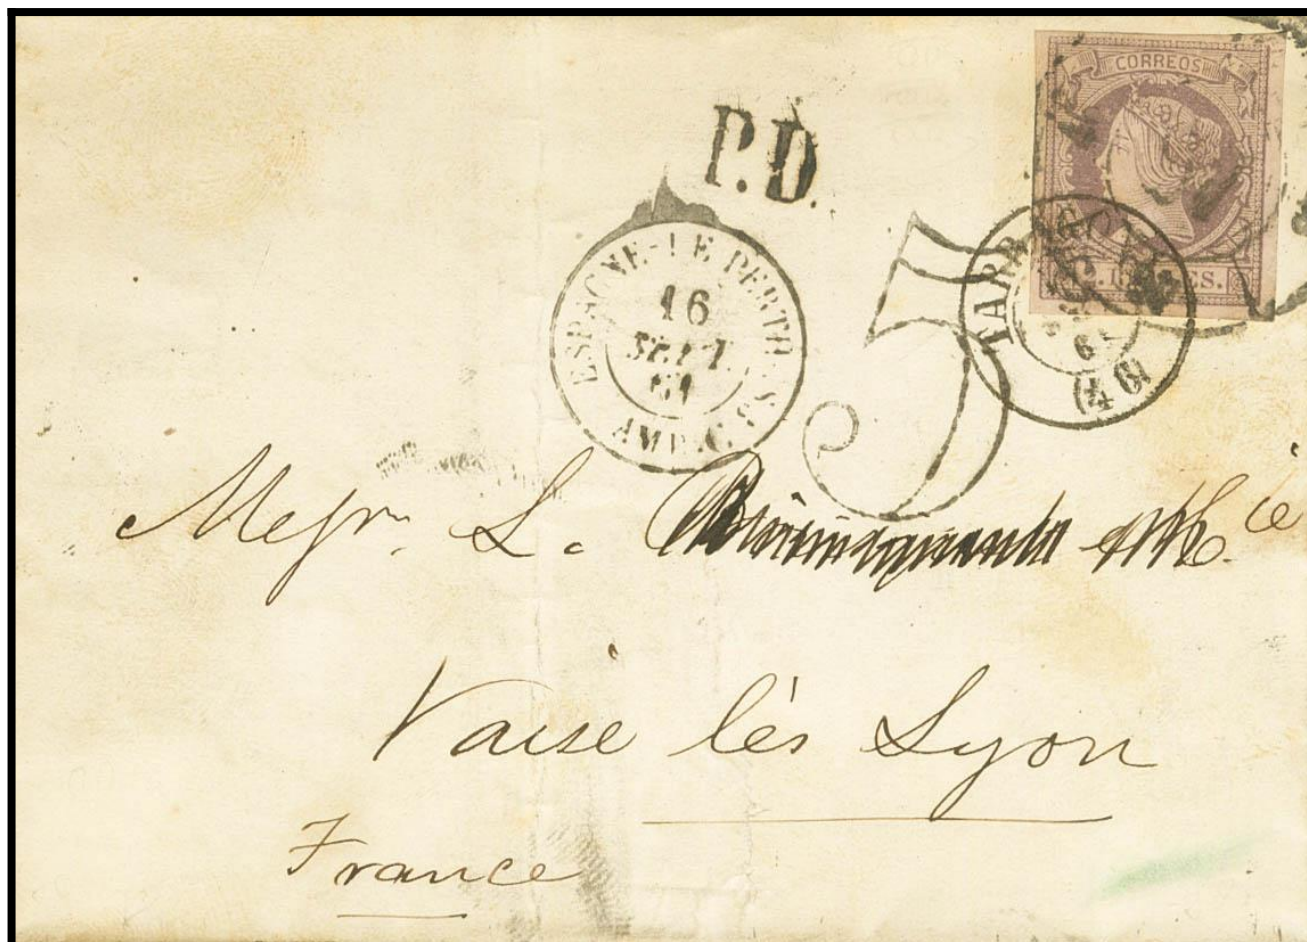 CORREOS
P.D.
ESPAGNE-LE PERTHUS
16
SEPT.
61
AMB.C.
5
TARRAGONA
(49)
Mesrs. L.
Vaise lès Lyon
France